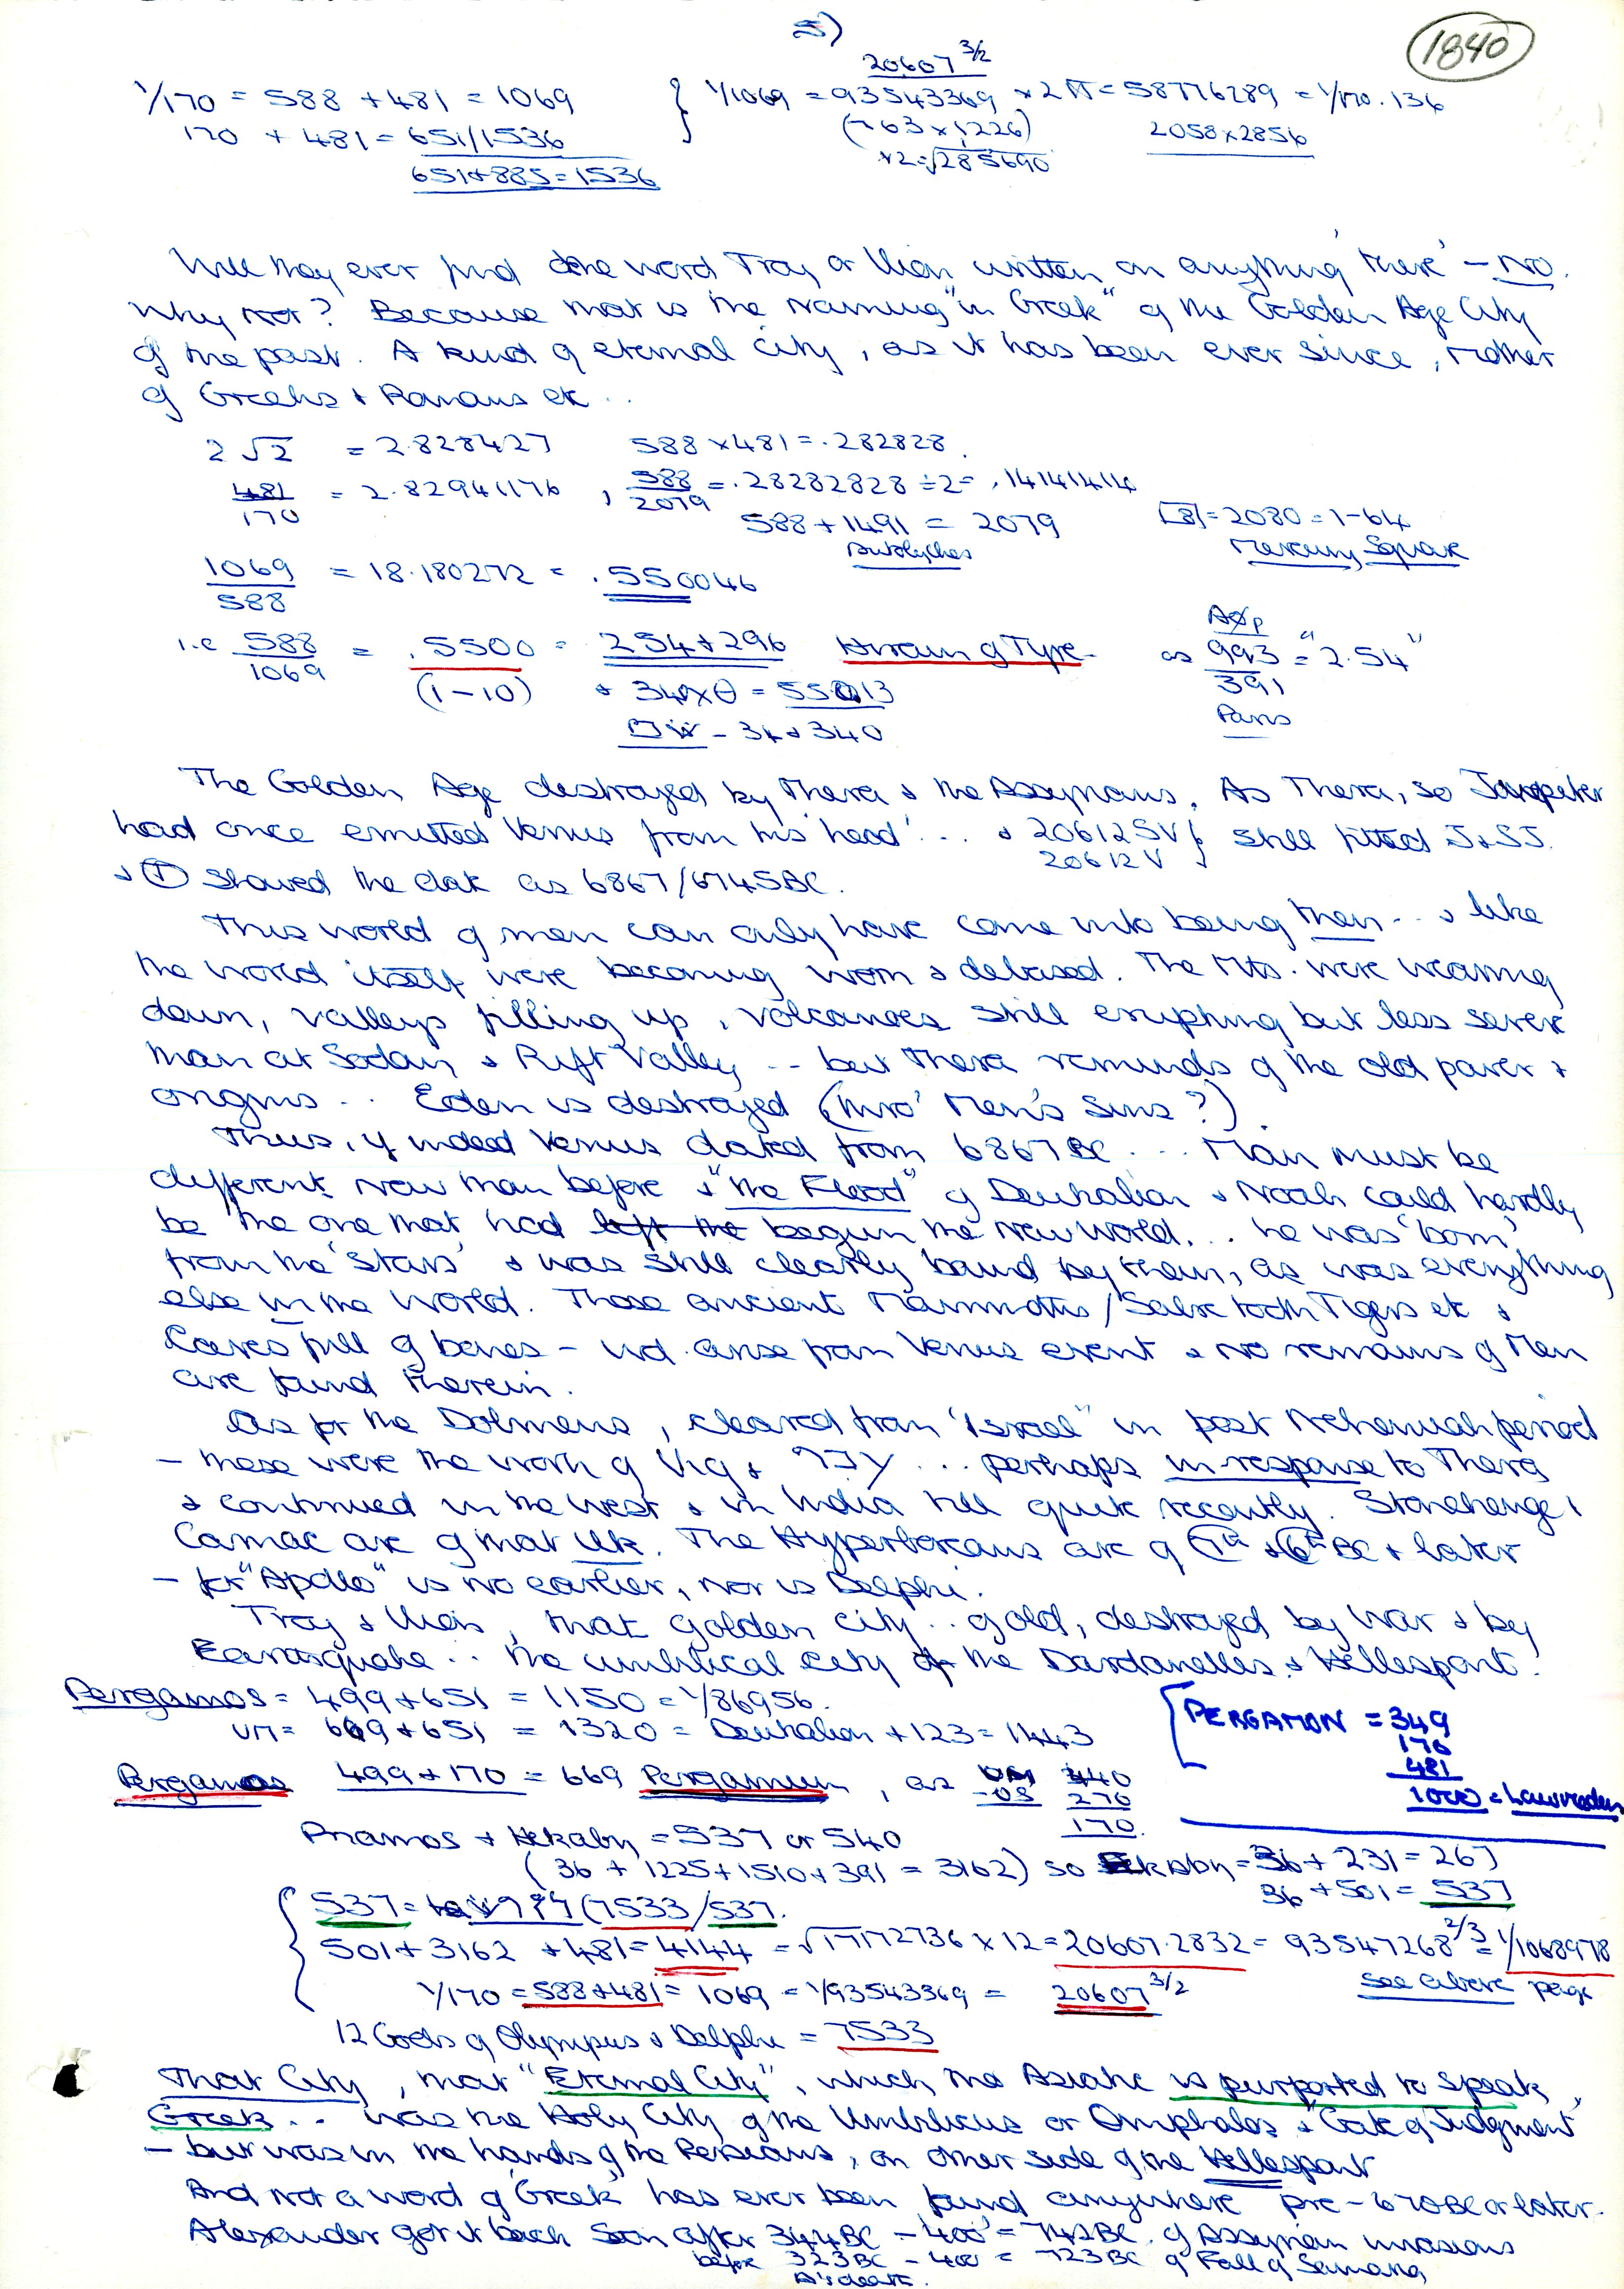 5)
1840
20607 3/2
1/170 = 588 + 481 = 1069 } 1/1069 = 93543369 × 2π = 58776289 = 1/170.136
170 + 481 = 651/1536 (763 × 1226) 2058 × 2856
651 + 885 = 1536 ×2 = √285690
Will they ever find the word Troy or Ilion written on anything 'there' - NO.
Why not? Because that is the naming "in Greek" of the Golden Age City
of the past. A kind of eternal city, as it has been ever since, mother
of Greeks + Romans etc..
2√2 = 2.828427 588 × 481 = .282828.
481/170 = 2.82941176, 588/2079 = .28282828 ÷ 2 = .14141414
588 + 1491 = 2079 [8] = 2080 = 1-64
Autolychos Mercury Square
1069/588 = 18.180272 = .550046
i.e 588/1069 = .5500 = 254 + 296 Hiram of Tyre as 993/391 = "2.54"
(1-10) + 340 × θ = 55013 Paris
- 34 + 340
The Golden Age destroyed by Thera & the Assyrians. As Thera, so Jupiter
had once emitted Venus from his 'head'... & 20612 SV } still fitted J&SJ.
20612 V
& (T) showed the date as 6867/6745BC.
This world of men can only have come into being then... & like
the world itself were becoming worn & debased. The Mts. were wearing
down, valleys filling up, volcanoes still erupting but less severe
than at Sodom & Rift Valley... but Thera reminds of the old power &
origins... Eden is destroyed (thro' Men's Sins?)
Thus, if indeed Venus dated from 6867 BC... Man must be
different now than before & "the Flood" of Deukalion & Noah could hardly
be the one that had left the begun the New World... he was 'born'
from the 'Stars' & was still clearly bound by them, as was everything
else in the world. Those ancient Mammoths/Sabre tooth Tigers etc &
Caves full of bones - wd. arise from Venus event & no remains of Men
are found therein.
As for the Dolmens, cleared from "Israel" in post Nehemiah period
- these were the work of ... perhaps in response to Thera
& continued in the West & in India till quite recently. Stonehenge,
Carnac are of that ilk. The Hyperboreans are of 7th & 6th BC & later
- for "Apollo" is no earlier, nor is Delphi.
Troy & Ilion, that golden city.. gold, destroyed by War & by
Earthquake.. the umbilical city of the Dardanelles & Hellespont.
Pergamos = 499 + 651 = 1150 = 1/86956.
um = 669 + 651 = 1320 = Deukalion + 123 = 1443
[ PERGAMON = 349
176
481
1000 = Lawmaker
Pergamos 499 + 170 = 669 Pergamum, as um 440
-os 270
170.
Priamos + Hekaby = 537 or 540
(36 + 1225 + 1510 + 391 = 3162) so Hekaby = 36 + 231 = 267
36 + 501 = 537
537 = (7533/537.
501 + 3162 + 481 = 4144 = √17172736 × 12 = 20607.2832 = 93547268 2/3 = 1/1068978
see above page
1/170 = 588 + 481 = 1069 = 1/93543369 = 20607 3/2
12 Gods of Olympus & Delphi = 7533
That City, that "Eternal City", which the Asiatic is purported to speak
Greek... was the Holy City of the Umbilicus or Omphalos & 'Gate of Judgment'
- but was in the hands of the Persians, on other side of the Hellespont
And not a word of 'Greek' has ever been found anywhere pre-670BC or later.
Alexander got it back soon after 344BC - '400' = 742BC. of Assyrian invasions
before 323BC - 400 = 723BC of Fall of Samaria
A's death.